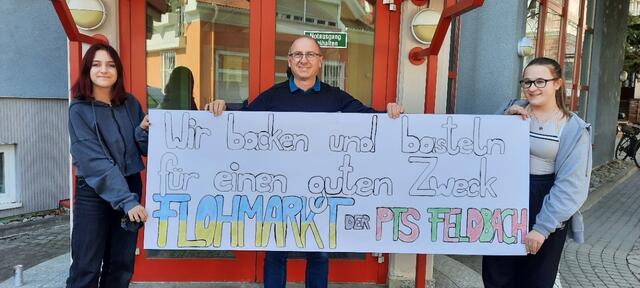 Notausgang
freihalten
Wir backen und basteln
für einen guten Zweck
FLOHMARKT DER PTS FELDBACH